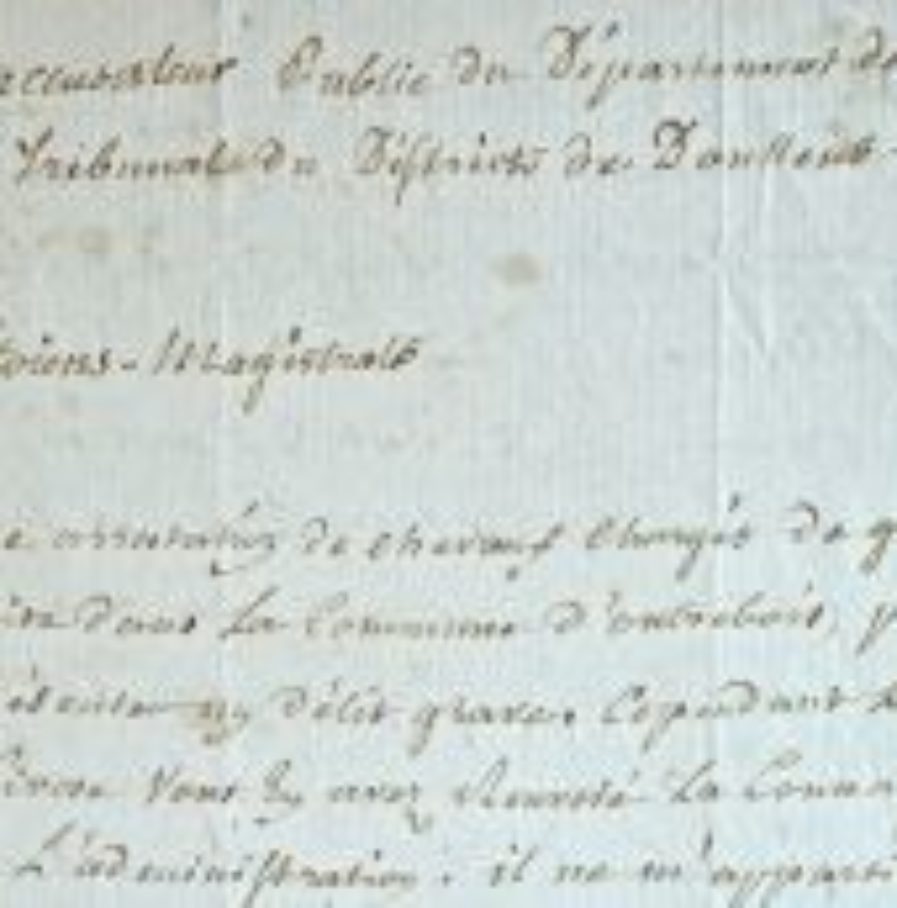 accusateur Public du Département de
Tribunal du District de Doullens
toiens-Magistrats
de chevaux chargés de g
dans La Commune d'outrebois, p
un délit grave. Cependant
Vous En avez Renvoié La Conna
L'administration. il ne m'apparti